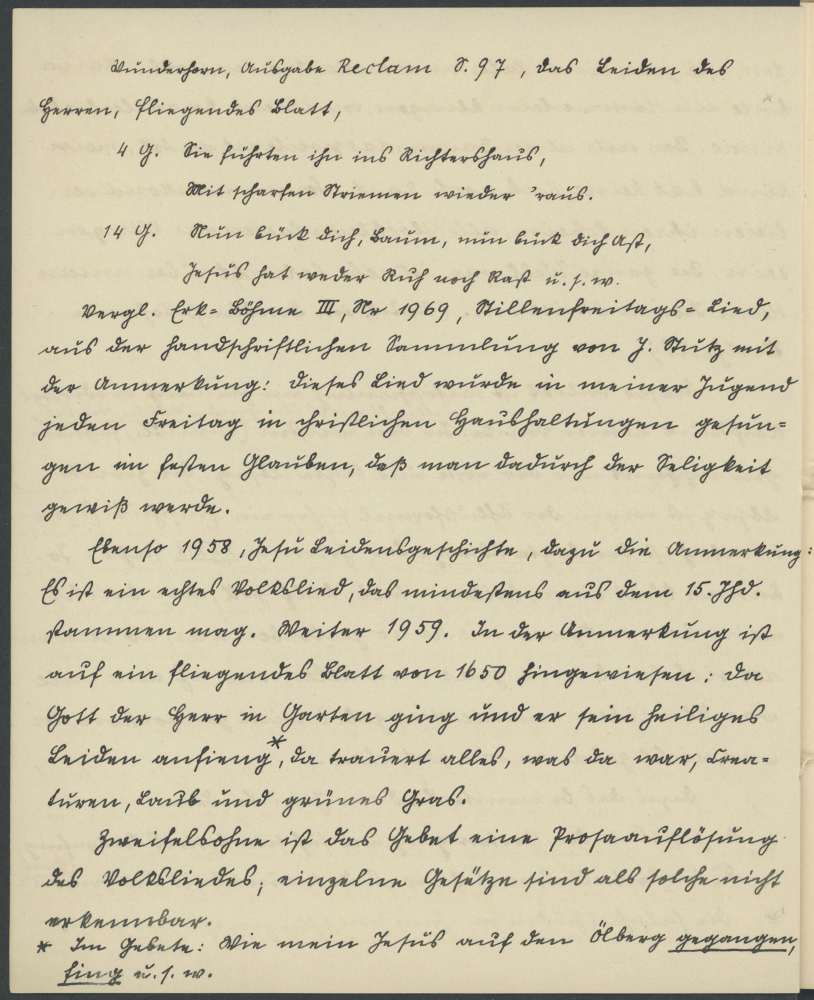 Wunderhorn, Ausgabe Reclam S. 97, das Leiden des
Herren, fliegendes Blatt,
4 G. Sie führten ihn ins Richtershaus,
Mit scharfen Striemen wieder 'raus.
14 G. Nun bück dich, Baum, nun bück dich Ast,
Jesus hat weder Ruh noch Rast u. s. w.
Vergl. Erk-Böhme III, Nr 1969, Stillenfreitags-Lied,
aus der handschriftlichen Sammlung von J. Stutz mit
der Anmerkung: dieses Lied wurde in meiner Jugend
jeden Freitag in christlichen Haushaltungen gesun-
gen im festen Glauben, daß man dadurch der Seligkeit
gewiß werde.
Ebenso 1958, Jesu Leidensgeschichte, dazu die Anmerkung:
Es ist ein echtes Volkslied, das mindestens aus dem 15. Jhd.
stammen mag. Weiter 1959. In der Anmerkung ist
auf ein fliegendes Blatt von 1650 hingewiesen: Da
Gott der Herr in Garten ging und er sein heiliges
Leiden anfieng*, da trauert alles, was da war, Crea-
turen, Laub und grünes Gras.
Zweifelsohne ist das Gebet eine Prosaauflösung
des Volksliedes; einzelne Gesätze sind als solche nicht
erkennbar.
* Im Gebete: Wie mein Jesus auf den Ölberg gegangen,
fing u. s. w.